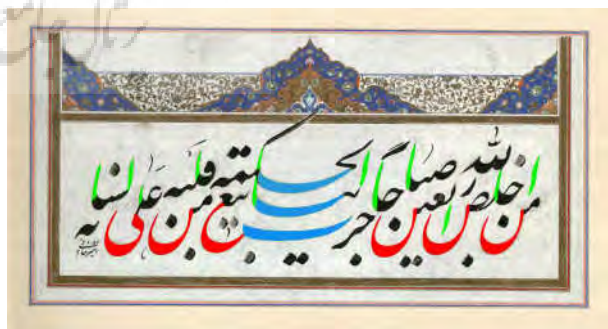 من اخلص لله اربعین صباحا جرت ینابیع الحکمة من قلبه علی لسانه